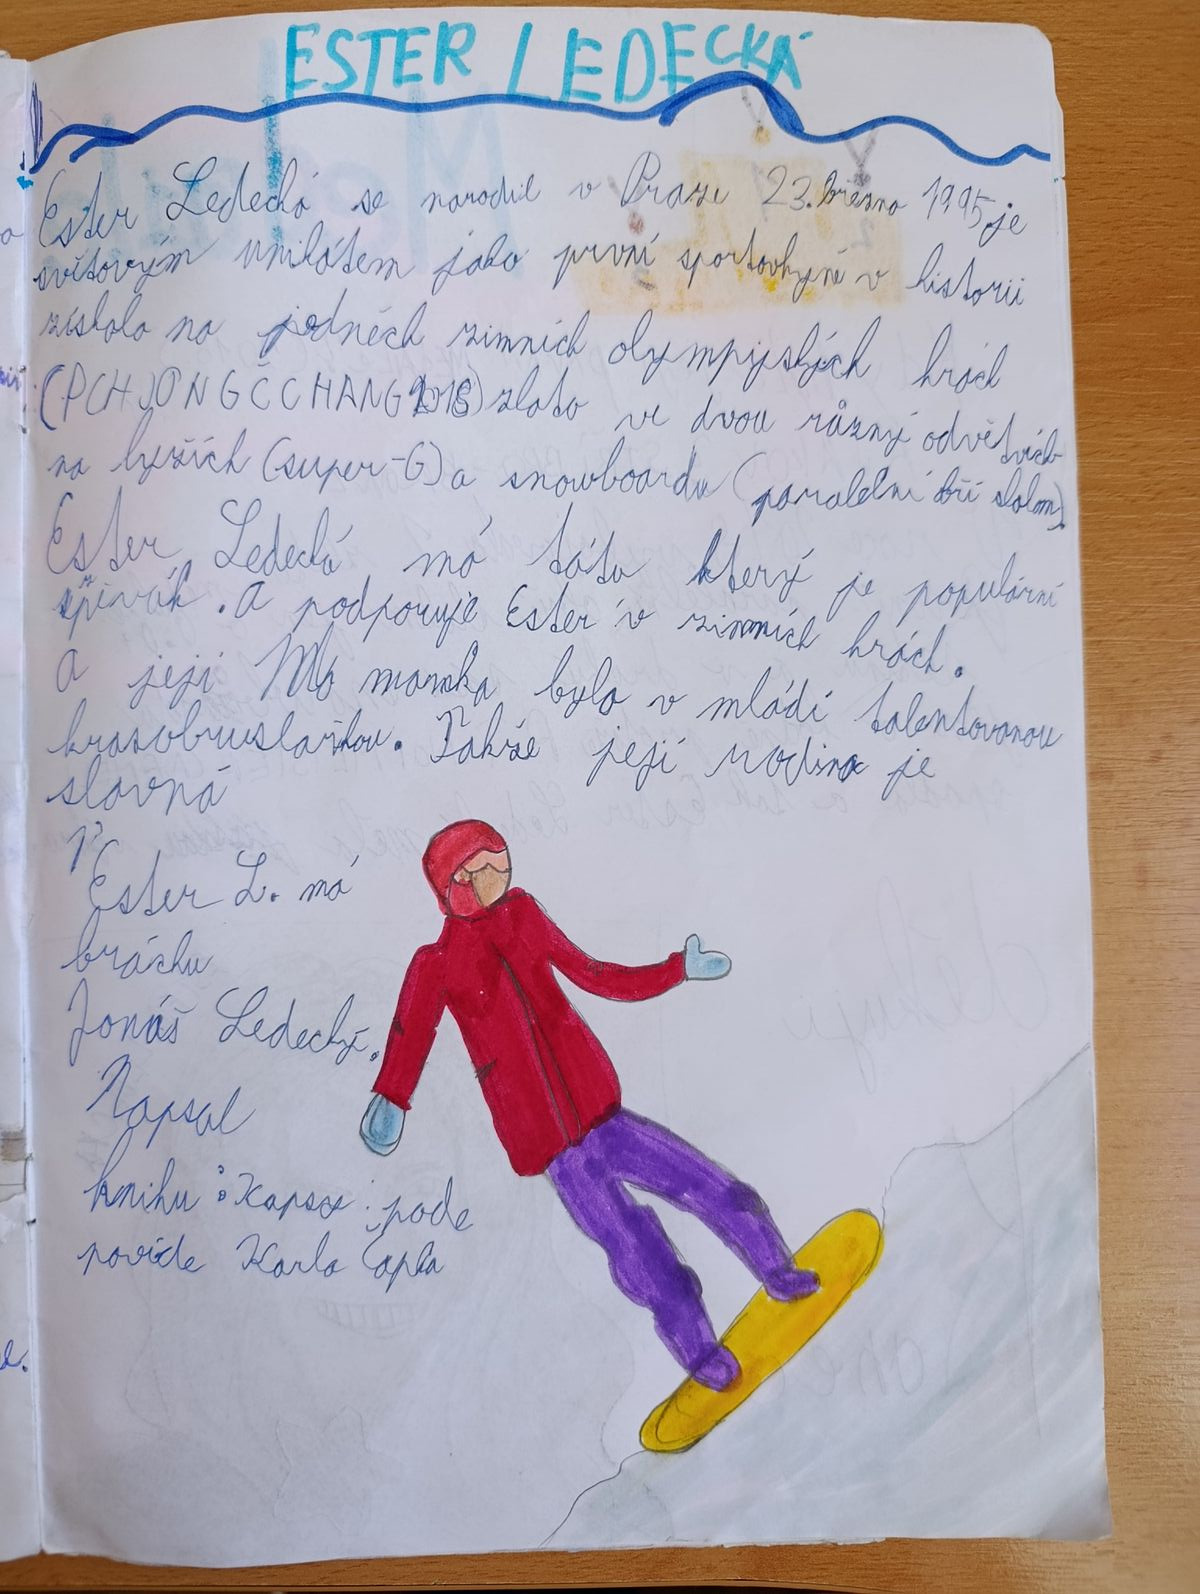 ESTER LEDECKÁ
Ester Ledecká se narodil v Praze 23. března 1995 je
světovým unikátem jako první sportovkyně v historii
získala na jedněch zimních olympijských hrách
(PCHJONGČCHANG 2018) zlato ve dvou různý odvětvích
na lyžích (super-G) a snowboardu (paralelní obří slalom)
Ester Ledecká má tátu který je populární
zpívák. A podporuje Ester v zimních hrách.
A její Ma mamka byla v mládí talentovanou
krasobruslařkou. Takže její rodina je
slavná
Ester L. má
bráchu
Jonáš Ledecký.
Napsal
knihu: Kapsy: pode
povíde Karla Čapka